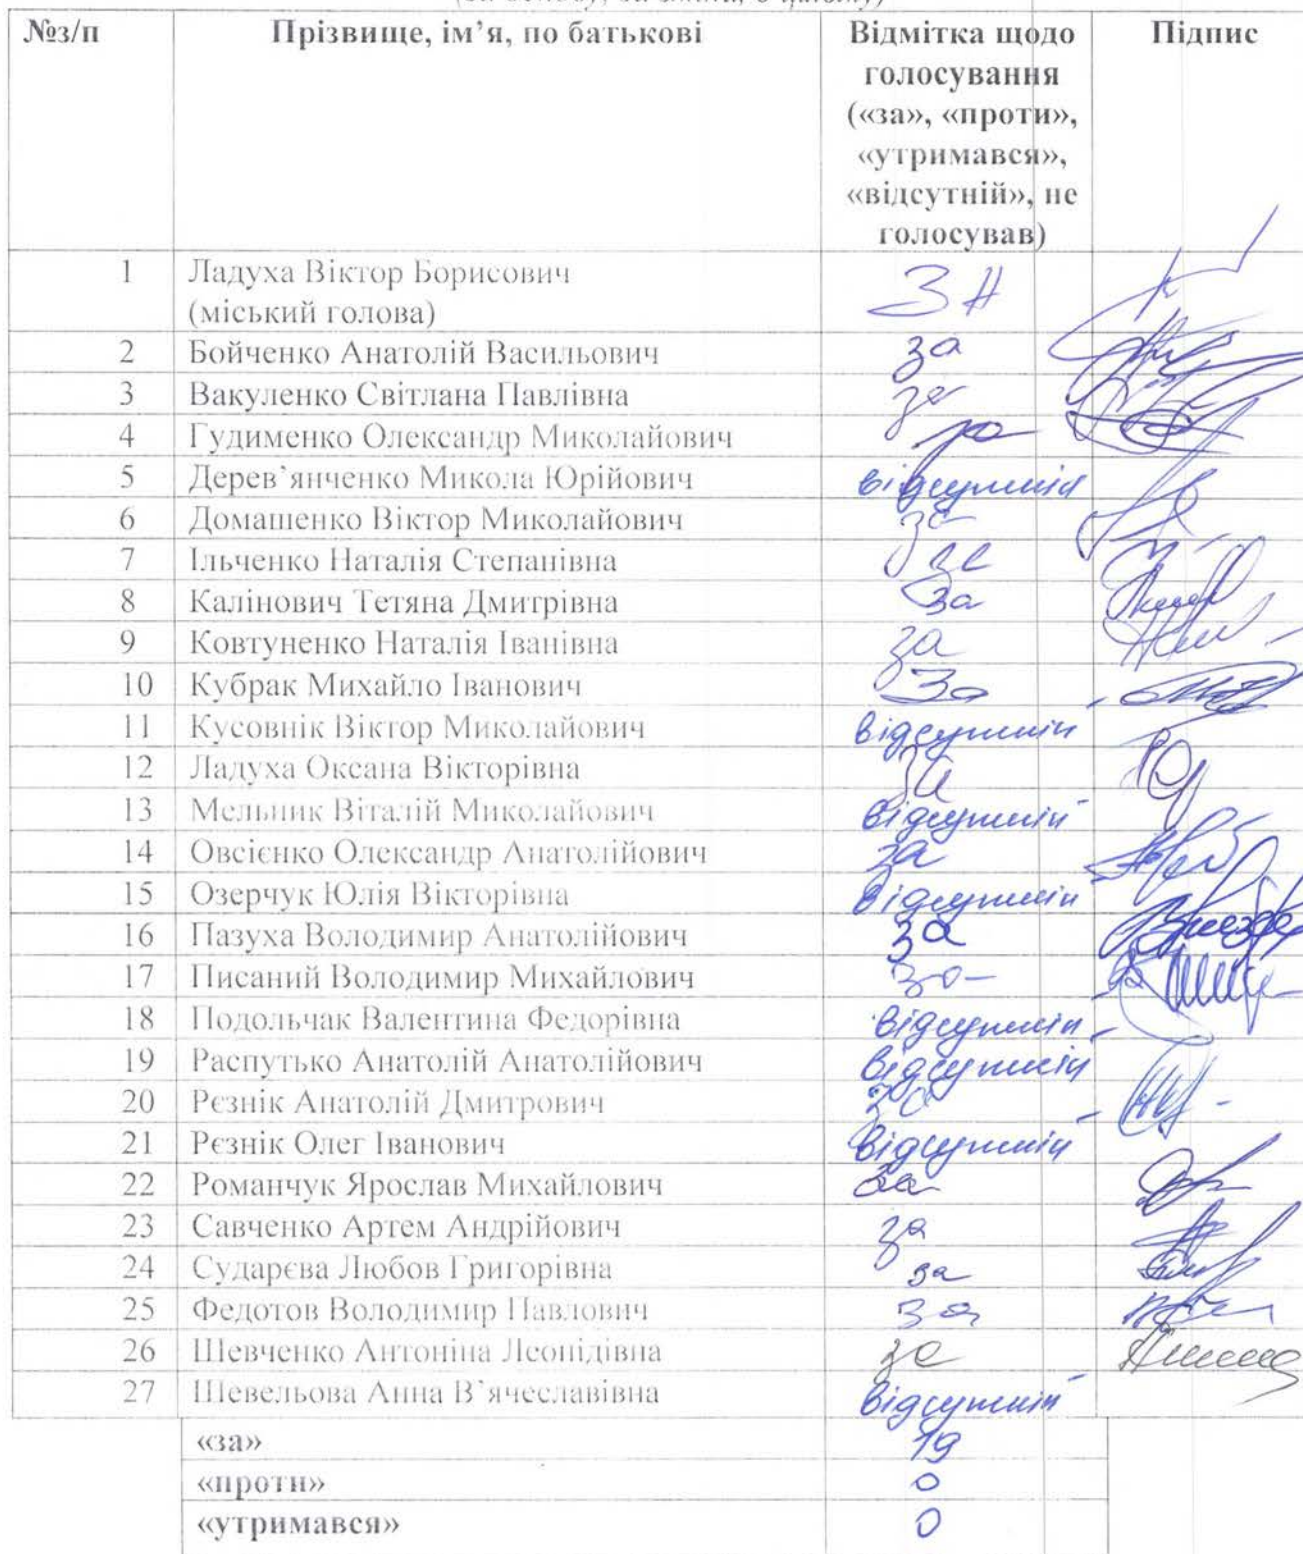 №з/п Прізвище, ім’я, по батькові Відмітка щодо Підпис
голосування
(«за», «проти»,
«утримався»,
«відсутній», не
голосував)
1 Ладуха Віктор Борисович ЗА
(міський голова)
2 Бойченко Анатолій Васильович за
3 Вакуленко Світлана Павлівна за
4 Гудименко Олександр Миколайович за
5 Дерев`янченко Микола Юрійович відсутній
6 Домашенко Віктор Миколайович за
7 Ільченко Наталія Степанівна за
8 Калінович Тетяна Дмитрівна за
9 Ковтуненко Наталія Іванівна за
10 Кубрак Михайло Іванович за
11 Кусовнік Віктор Миколайович відсутній
12 Ладуха Оксана Вікторівна за
13 Мельник Віталій Миколайович відсутній
14 Овсієнко Олександр Анатолійович за
15 Озерчук Юлія Вікторівна відсутній
16 Пазуха Володимир Анатолійович за
17 Писаний Володимир Михайлович за
18 Подольчак Валентина Федорівна відсутній
19 Распутько Анатолій Анатолійович відсутній
20 Рєзнік Анатолій Дмитрович за
21 Рєзнік Олег Іванович відсутній
22 Романчук Ярослав Михайлович за
23 Савченко Артем Андрійович за
24 Сударєва Любов Григорівна за
25 Федотов Володимир Павлович за
26 Шевченко Антоніна Леонідівна за
27 Шевельова Анна В`ячеславівна відсутній
«за» 19
«проти» 0
«утримався» 0